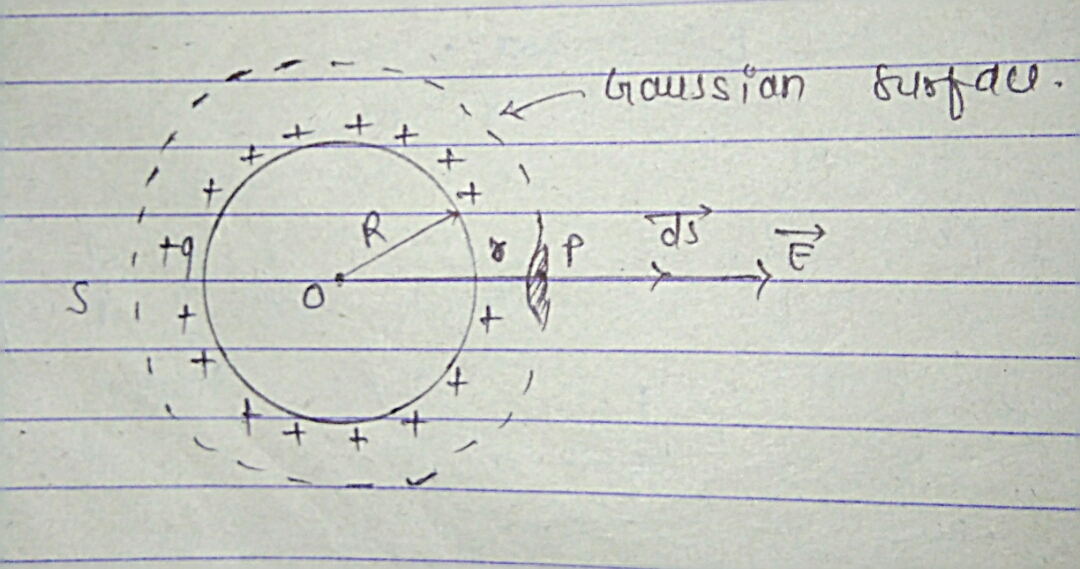 Gaussian surface.
+ + +
+ +
+ +
R r P ds E
+q
S O
+ +
+ +
+ + + +